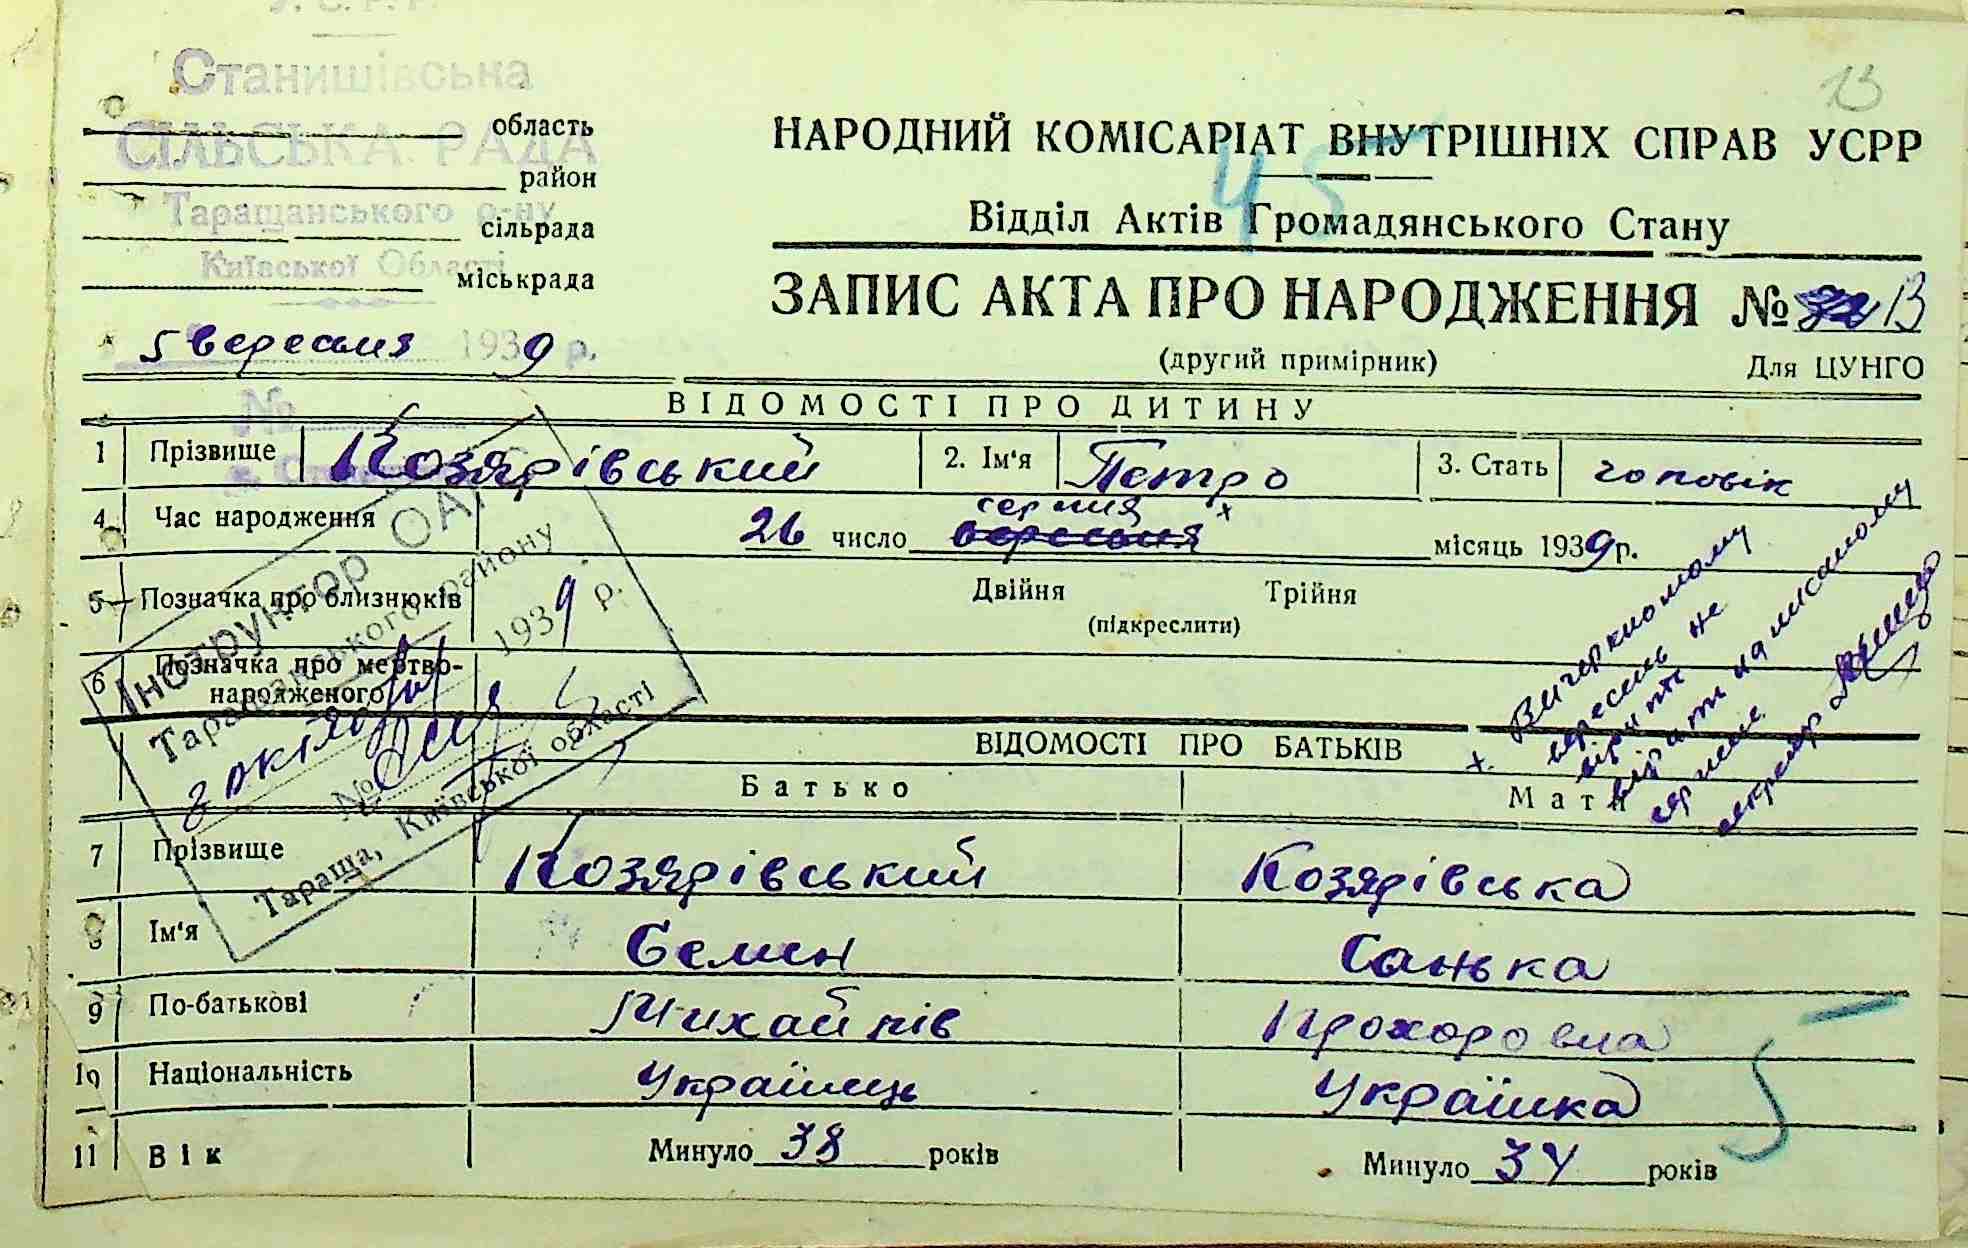 У. С. Р. Р.
Станишівська
СІЛЬСЬКА РАДА
Таращанського р-ну
Київської Області
область
район
сільрада
міськрада
5 вересня 1939 р.
№
13
НАРОДНИЙ КОМІСАРІАТ ВНУТРІШНІХ СПРАВ УСРР
45
Відділ Актів Громадянського Стану
ЗАПИС АКТА ПРО НАРОДЖЕННЯ № 13
(другий примірник) Для ЦУНГО
ВІДОМОСТІ ПРО ДИТИНУ
1 Прізвище Козярівський 2. Ім'я Петро 3. Стать чоловік
серпня x
4 Час народження 26 число вересня місяць 1939 р.
5 Позначка про близнюків Двійня Трійня
(підкреслити)
6 Позначка про мертво-
народженого
Інструктор ОАГС
Таращанського району
1939 р.
№
Тараща, Київської області
x Вичеркнотому
вересень не
вірити
вірити надписаному
серпень
секретар
ВІДОМОСТІ ПРО БАТЬКІВ
Батько Мати
7 Прізвище Козярівський Козярівська
8 Ім'я Семен Санька
9 По-батькові Михайлів Прохоровна
10 Національність Українець Українка
5
11 Вік Минуло 38 років Минуло 34 років